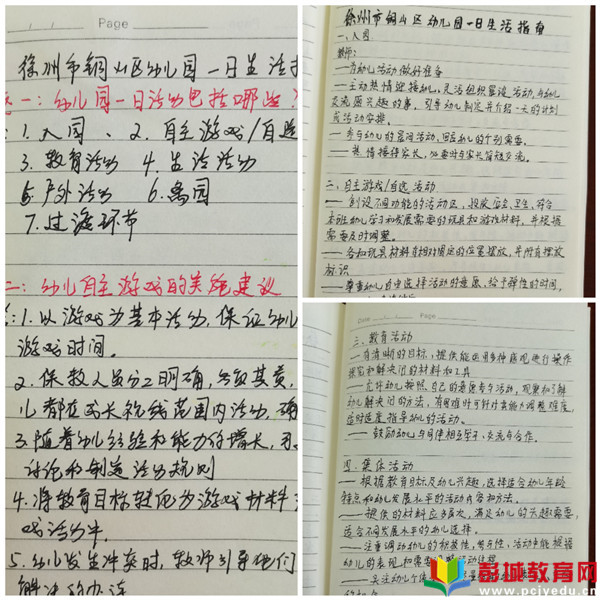 Page
徐州市铜山区幼儿园一日生活指
一:幼儿园一日活动包括哪些?
1.入园、 2.自主游戏/自选
3.教育活动 4.生活活动
5.户外活动 6.离园
7.过渡环节
二:幼儿自主游戏的关键建议
:1.以游戏为基本活动,保证幼儿
游戏时间。
2.保教人员分工明确,各负其责,
儿都在成长视线范围内活动,确
3.随着幼儿经验和能力的增长,
讨论和制定活动规则
4.将教育目标转化为游戏材料
戏活动中.
5.幼儿发生冲突时,教师引导他们
解决的办法
徐州市铜山区幼儿园一日生活指南
一、入园
教师:
—为幼儿活动做好准备
—主动热情迎接幼儿,灵活组织晨谈活动,与幼儿
交流感兴趣的事,引导幼儿制定并介绍一天的计划
或活动安排。
—参与幼儿的晨间活动,回应幼儿的个别需要。
—热情接待家长,必要时与家长简短交流。
二、自主游戏/自选活动
—创设不同功能的活动区,投放安全、卫生、符合
本班幼儿学习和发展需要的玩具和游戏材料,并根据
需要及时调整。
—各种玩具材料有相对固定的位置摆放,并附有摆放
标识
—尊重幼儿自由选择活动的意愿,给予弹性的时间,
Date Page
三、教育活动
—有清晰的目标,提供能运用多种感观进行操作
探究和解决问题的材料和工具
—允许幼儿按照自己的意愿参与活动,观察和了解
幼儿解决问题的方法,有困难时可针对当时调整难度
适时适度指导幼儿的活动。
—鼓励幼儿与同伴相互学习、交流与合作。
四.集体活动
—根据教育目标及幼儿兴趣,选择适合幼儿年龄
特点和幼儿发展水平的活动内容和方法。
—提供的材料应多层次,满足幼儿的兴趣需要,
适合不同发展水平的幼儿选择。
—注重调动幼儿的积极性、参与性,活动中能根据
幼儿的表现和需要
—关注幼儿个体
彭城教育网
www.pcjyedu.cn